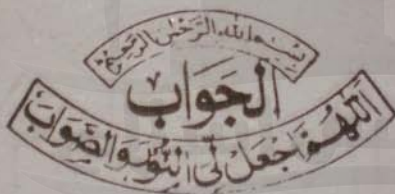 بِسْمِ اللهِ الرَّحْمٰنِ الرَّحِيْمِ
اَلجَوَاب
اَللّٰهُمَّ اجْعَلْ لِّیْ النُّوْرَ وَالصَّوَابَ